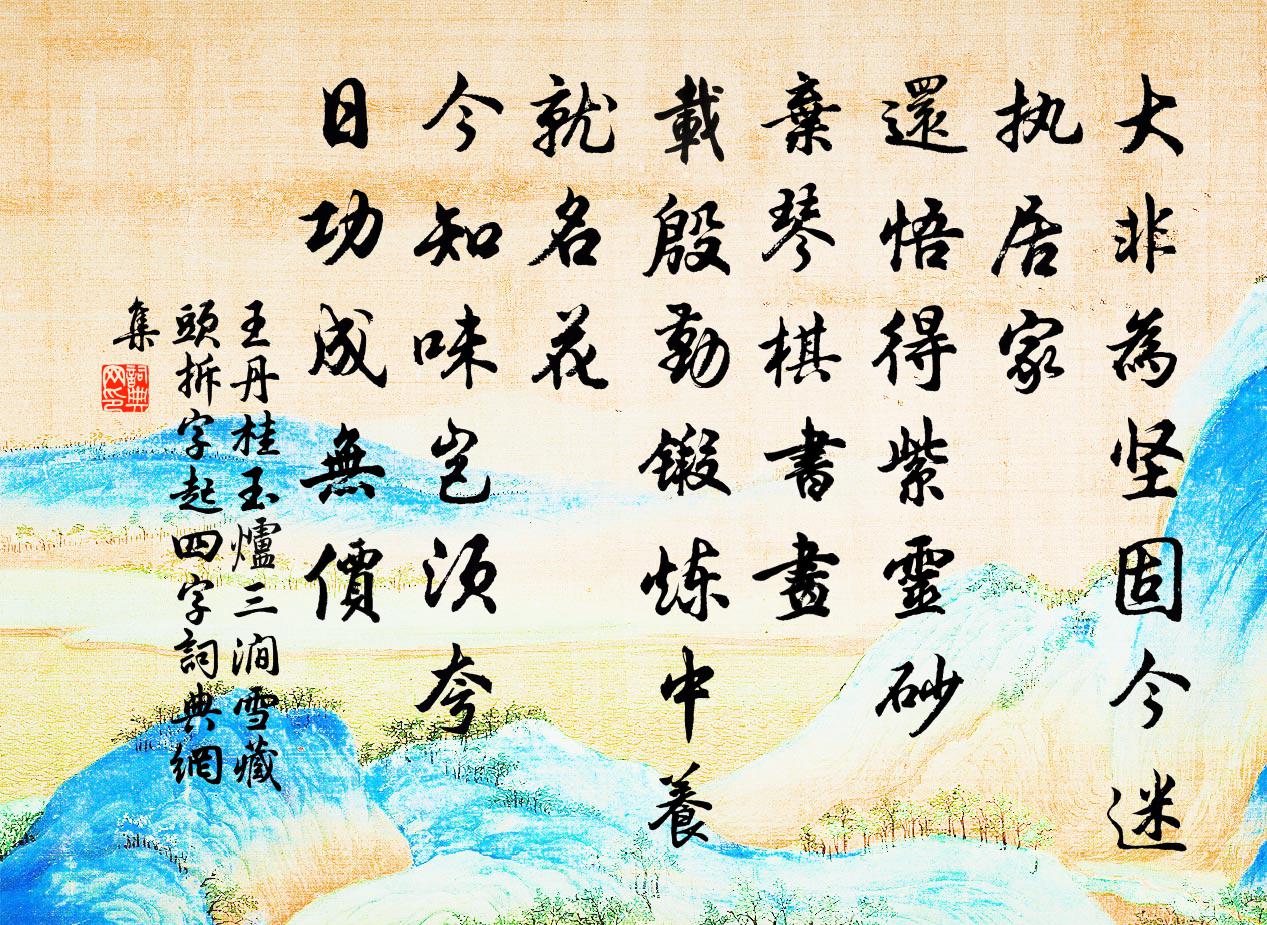 大非為坚固今迷
执居家
還悟得紫靈砂
棄琴棋書畫
載殷勤鍛炼中養
就名花
今知味岂须夸
日功成無價
王丹桂玉爐三澗雪藏
頭拆字起四字詞典網
集
詞典
网印